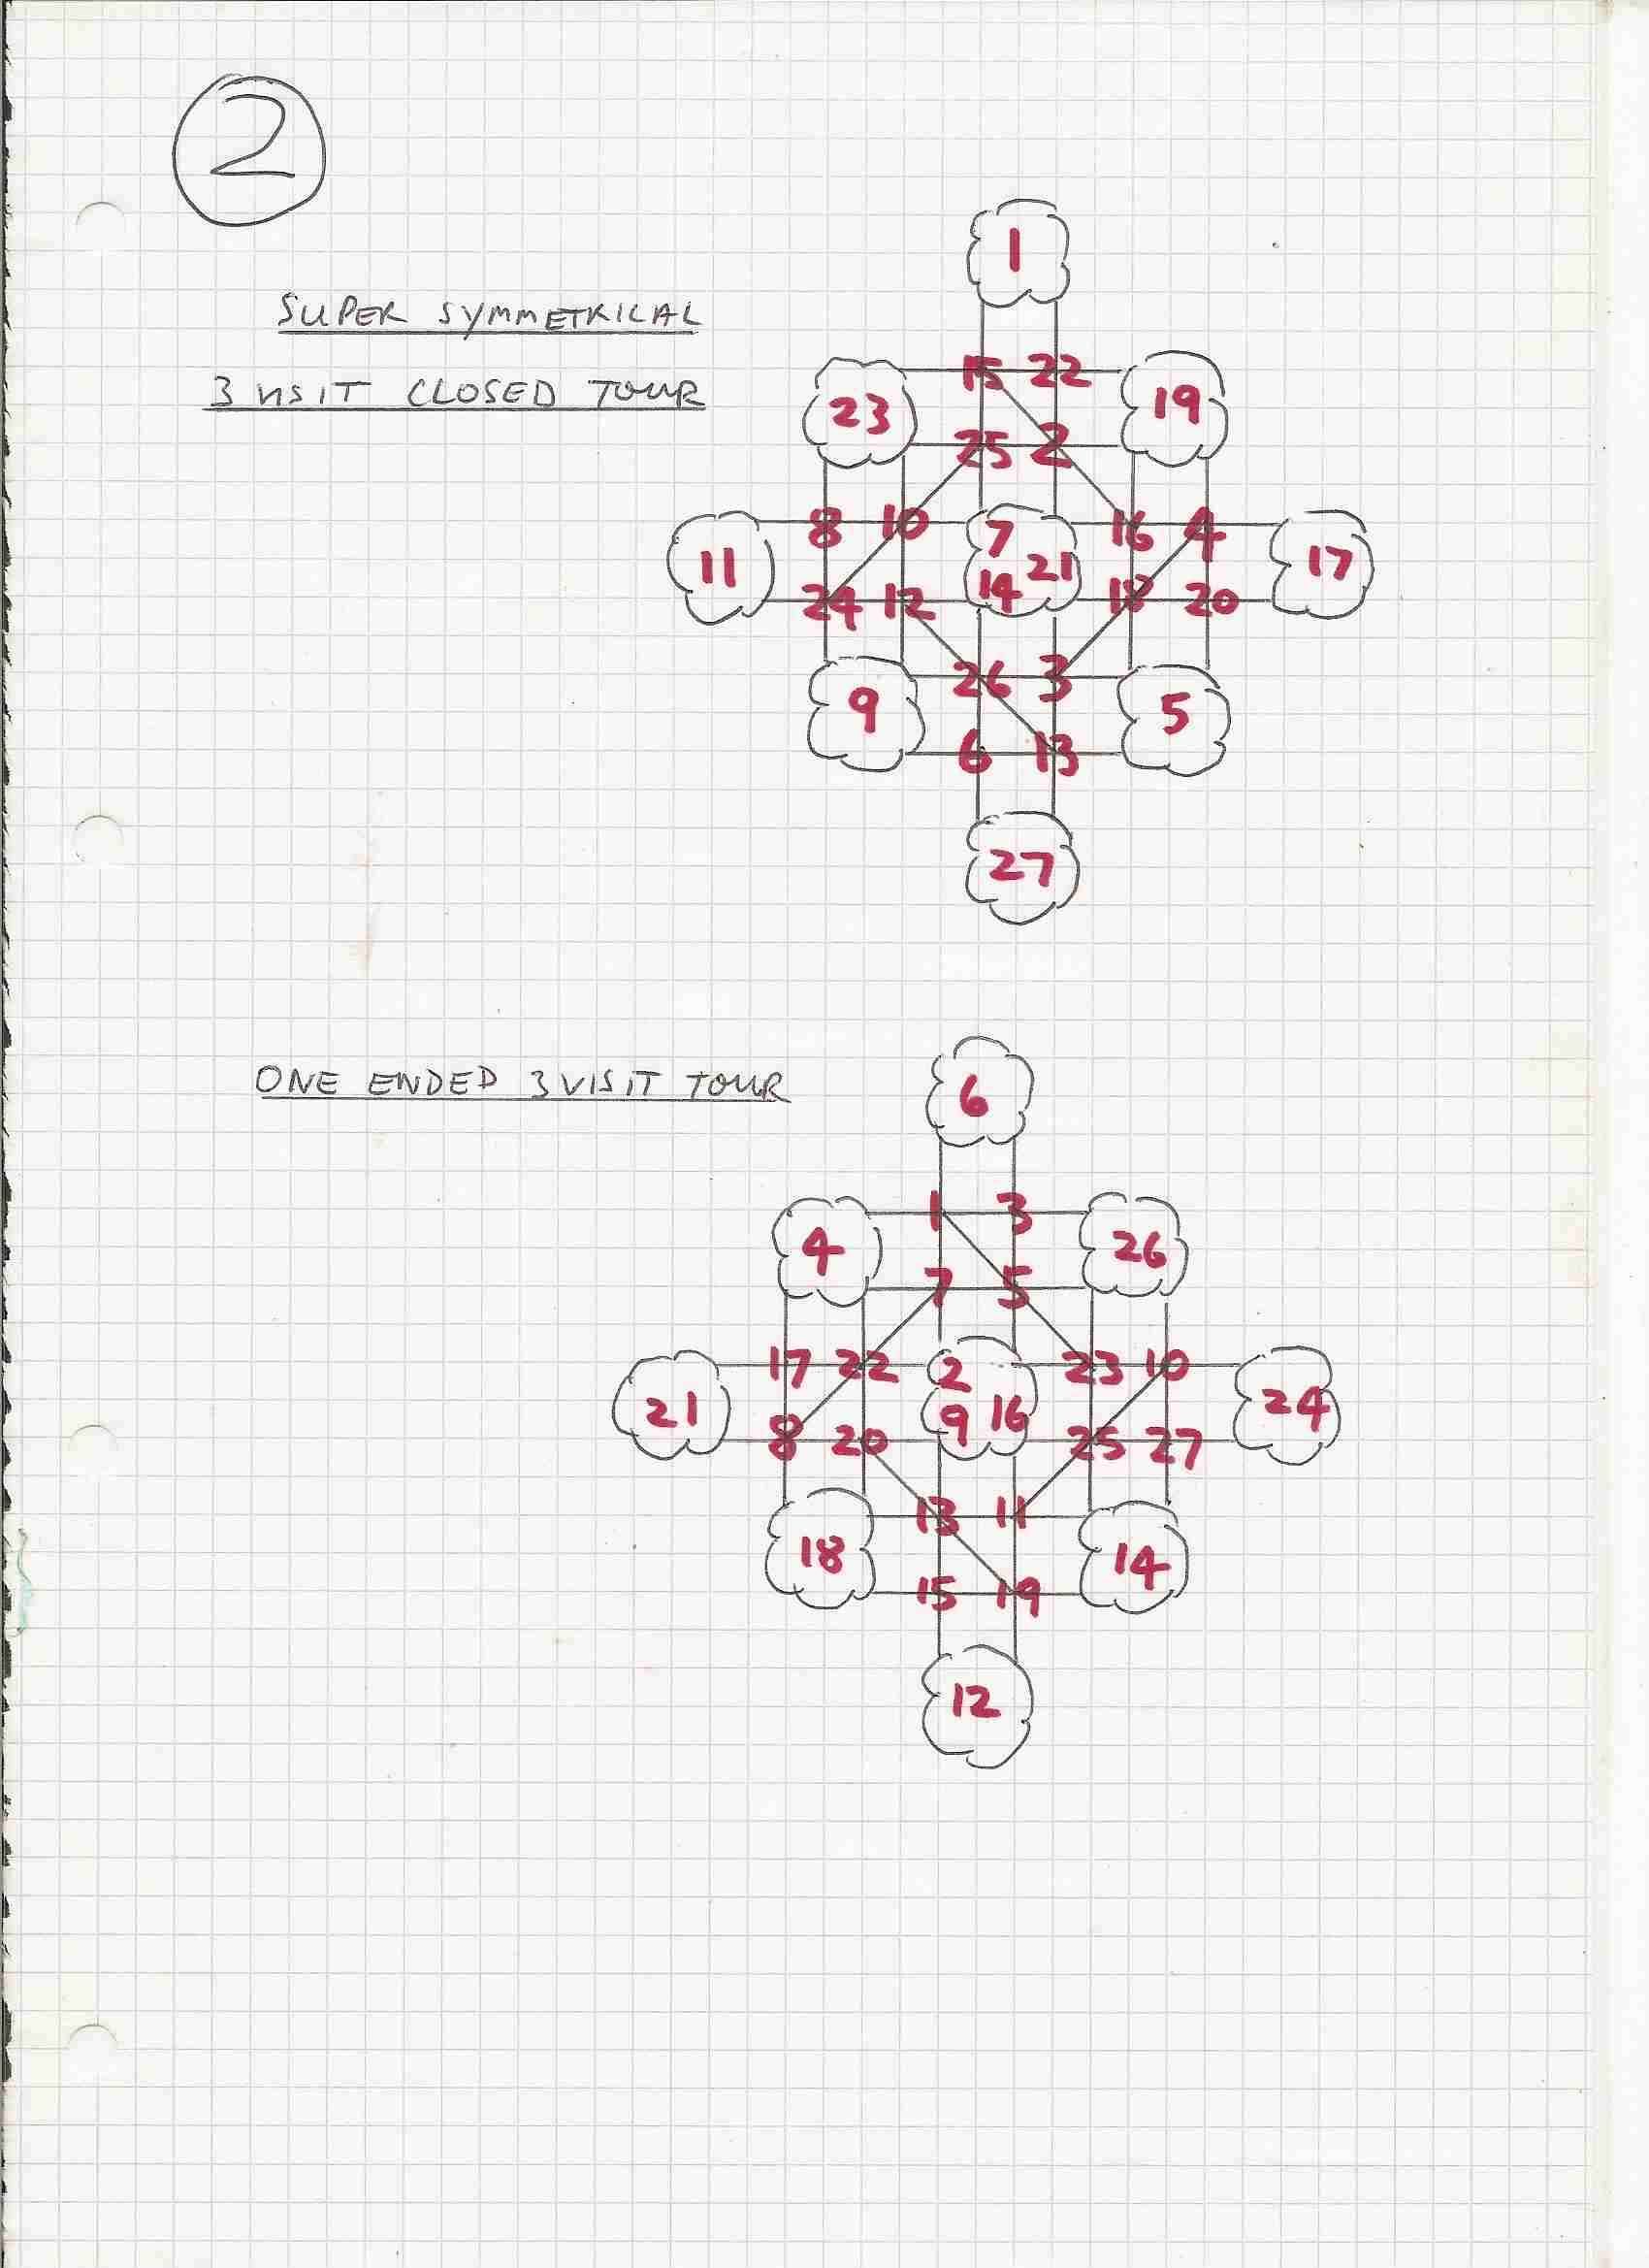 2
SUPER SYMMETRICAL
3 VISIT CLOSED TOUR
1
15 22
23 19
25 2
8 10 7 16 4
11 21 17
24 12 14 18 20
26 3
9 5
6 13
27
ONE ENDED 3 VISIT TOUR
6
1 3
4 26
7 5
17 22 2 23 10
21 9 16 24
8 20 25 27
13 11
18 14
15 19
12